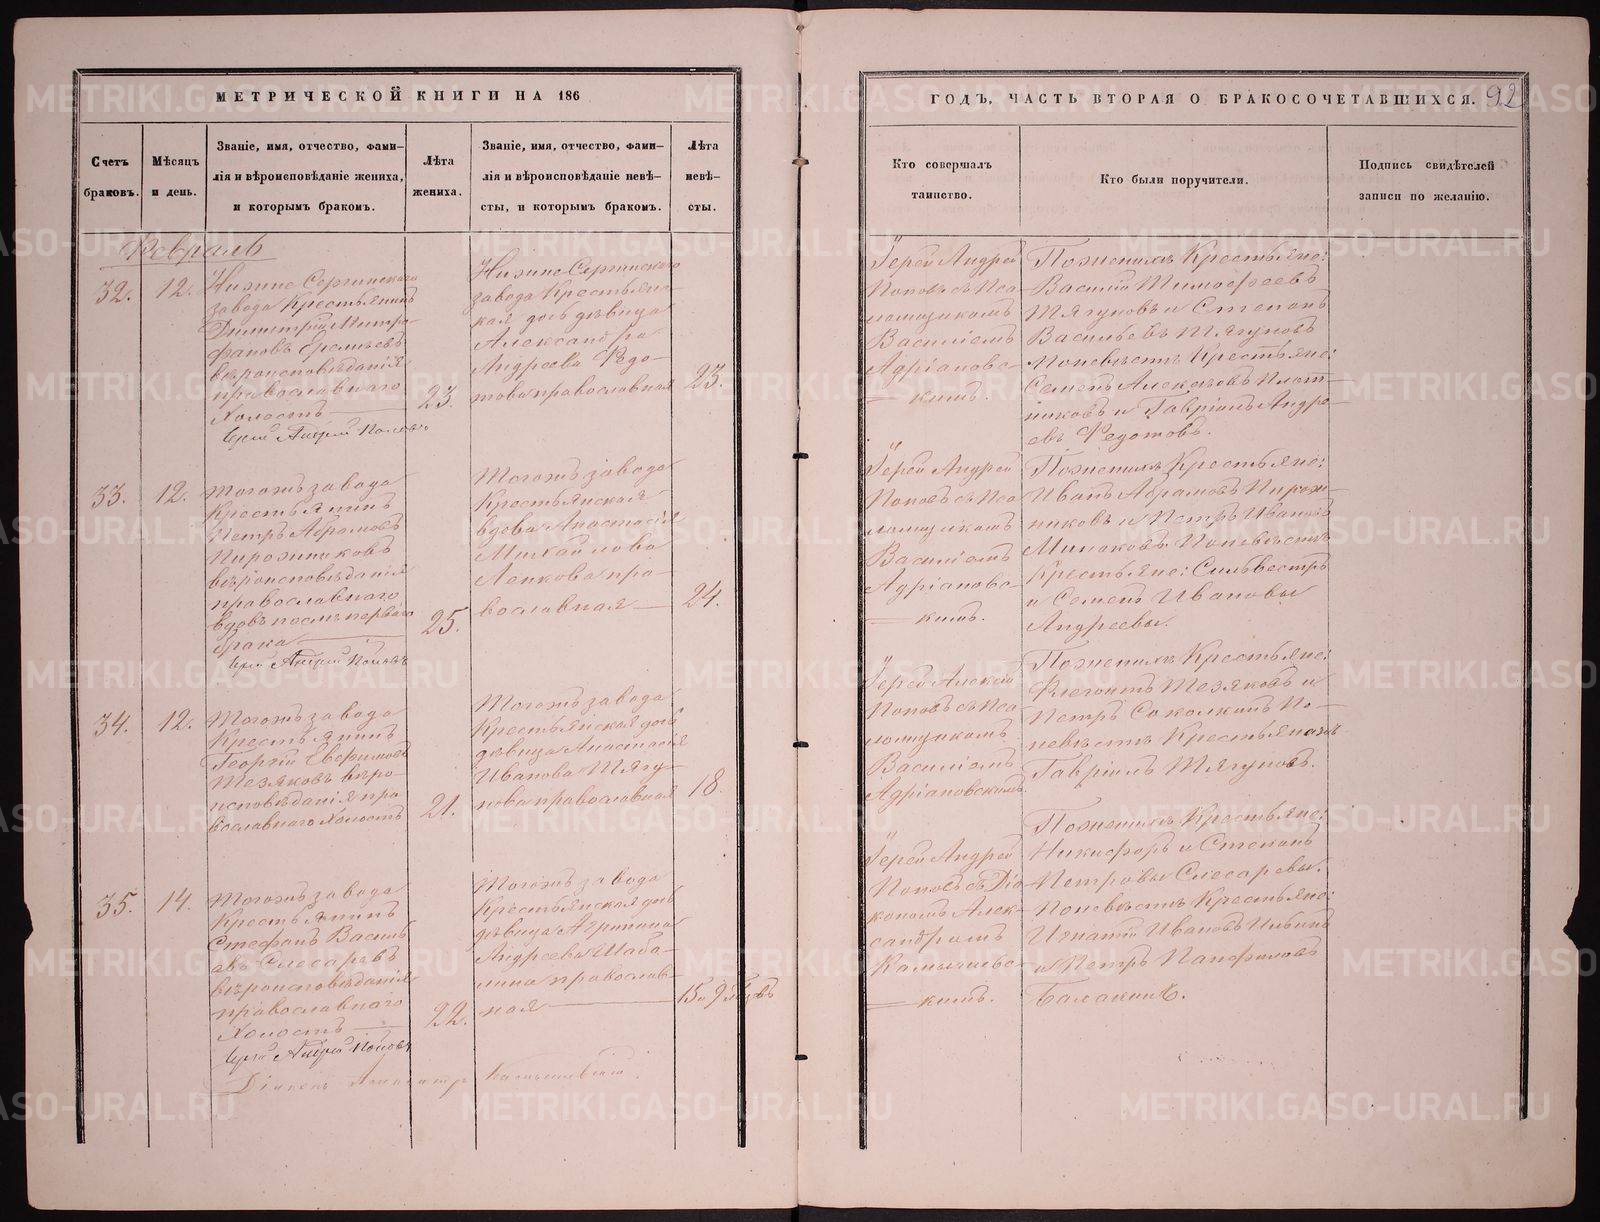 МЕТРИЧЕСКОЙ КНИГИ НА 186
Счетъ браковъ.
Мѣсяцъ и день.
Званіе, имя, отчество, фами-
лія и вѣроисповѣданіе жениха,
и которымъ бракомъ.
Лѣта жениха.
Званіе, имя, отчество, фами-
лія и вѣроисповѣданіе невѣ-
сты, и которымъ бракомъ.
Лѣта невѣ-
сты.
Февраль
32.
12.
Нижне Сергинскаго
завода Крестьянинъ
Димитрій Митро-
фановъ
вѣроисповѣданія
православнаго
Холостъ
23.
Іерей Андрей Поповъ
Нижне Сергинскаго
завода Крестьянс-
кая дочь дѣвица
Александра
Андреева Федо-
това православная
23.
33.
12.
Тогожъ завода
Крестьянинъ
Петръ Абрамовъ
Пирожниковъ
вѣроисповѣданія
православнаго
вдовъ послѣ перваго
брака
25.
Іерей Андрей Поповъ
Тогожъ завода
Крестьянская
вдова Анастасія
Михайлова
Лепкова пра-
вославная
24.
34.
12.
Тогожъ завода
Крестьянинъ
Георгій Евфимовъ
Тезяковъ вѣро-
исповѣданія пра-
вославнаго Холостъ
21.
Тогожъ завода
Крестьянская дочь
дѣвица Анастасія
Иванова Тягу-
нова православная
18.
35.
14.
Тогожъ завода
Крестьянинъ
Стефанъ Василь-
евъ Слесаревъ
вѣроисповѣданія
православнаго
Холостъ
22.
Іерей Андрей Поповъ
Діаконъ Александръ Камышевскій.
Тогожъ завода
Крестьянская дочь
дѣвица Агрипина
Андреева Шаба-
лина православ-
ная
15 и 9 мѣсяцъ
ГОДЪ, ЧАСТЬ ВТОРАЯ О БРАКОСОЧЕТАВШИХСЯ.
92
Кто совершалъ
таинство.
Кто были поручители.
Подпись свидѣтелей
записи по желанію.
Іерей Андрей
Поповъ съ Пса-
ломщикомъ
Василіемъ
Адріановс-
кимъ.
По женихѣ Крестьяне:
Василій Тимофеевъ
Тягуновъ и Степанъ
Васильевъ Тягуновъ
По невѣстѣ Крестьяне:
Семенъ Алексѣевъ Плот-
никовъ и Гавріилъ Андре-
евъ Федотовъ.
Іерей Андрей
Поповъ съ Пса-
ломщикомъ
Василіемъ
Адріановс-
кимъ.
По женихѣ Крестьяне:
Иванъ Абрамовъ Пирож-
никовъ и Петръ Ивановъ
Минаковъ. По невѣстѣ
Крестьяне: Сильвестръ
и Семенъ Ивановы
Андреевы.
Іерей Алексѣй
Поповъ съ Пса-
ломщикомъ
Василіемъ
Адріановскимъ.
По женихѣ Крестьяне:
Флегонтъ Тезяковъ и
Петръ Соколкинъ По-
невѣстѣ Крестьянинъ
Гавріилъ Тягуновъ.
Іерей Андрей
Поповъ съ Діа-
кономъ Алек-
сандромъ
Камышевс-
кимъ.
По женихѣ Крестьяне:
Никифоръ и Степанъ
Петровы Слесаревы.
По невѣстѣ Крестьяне:
Игнатій Ивановъ
и Петръ Панфиловъ
Балакинъ.
METRIKI.GASO-URAL.RU